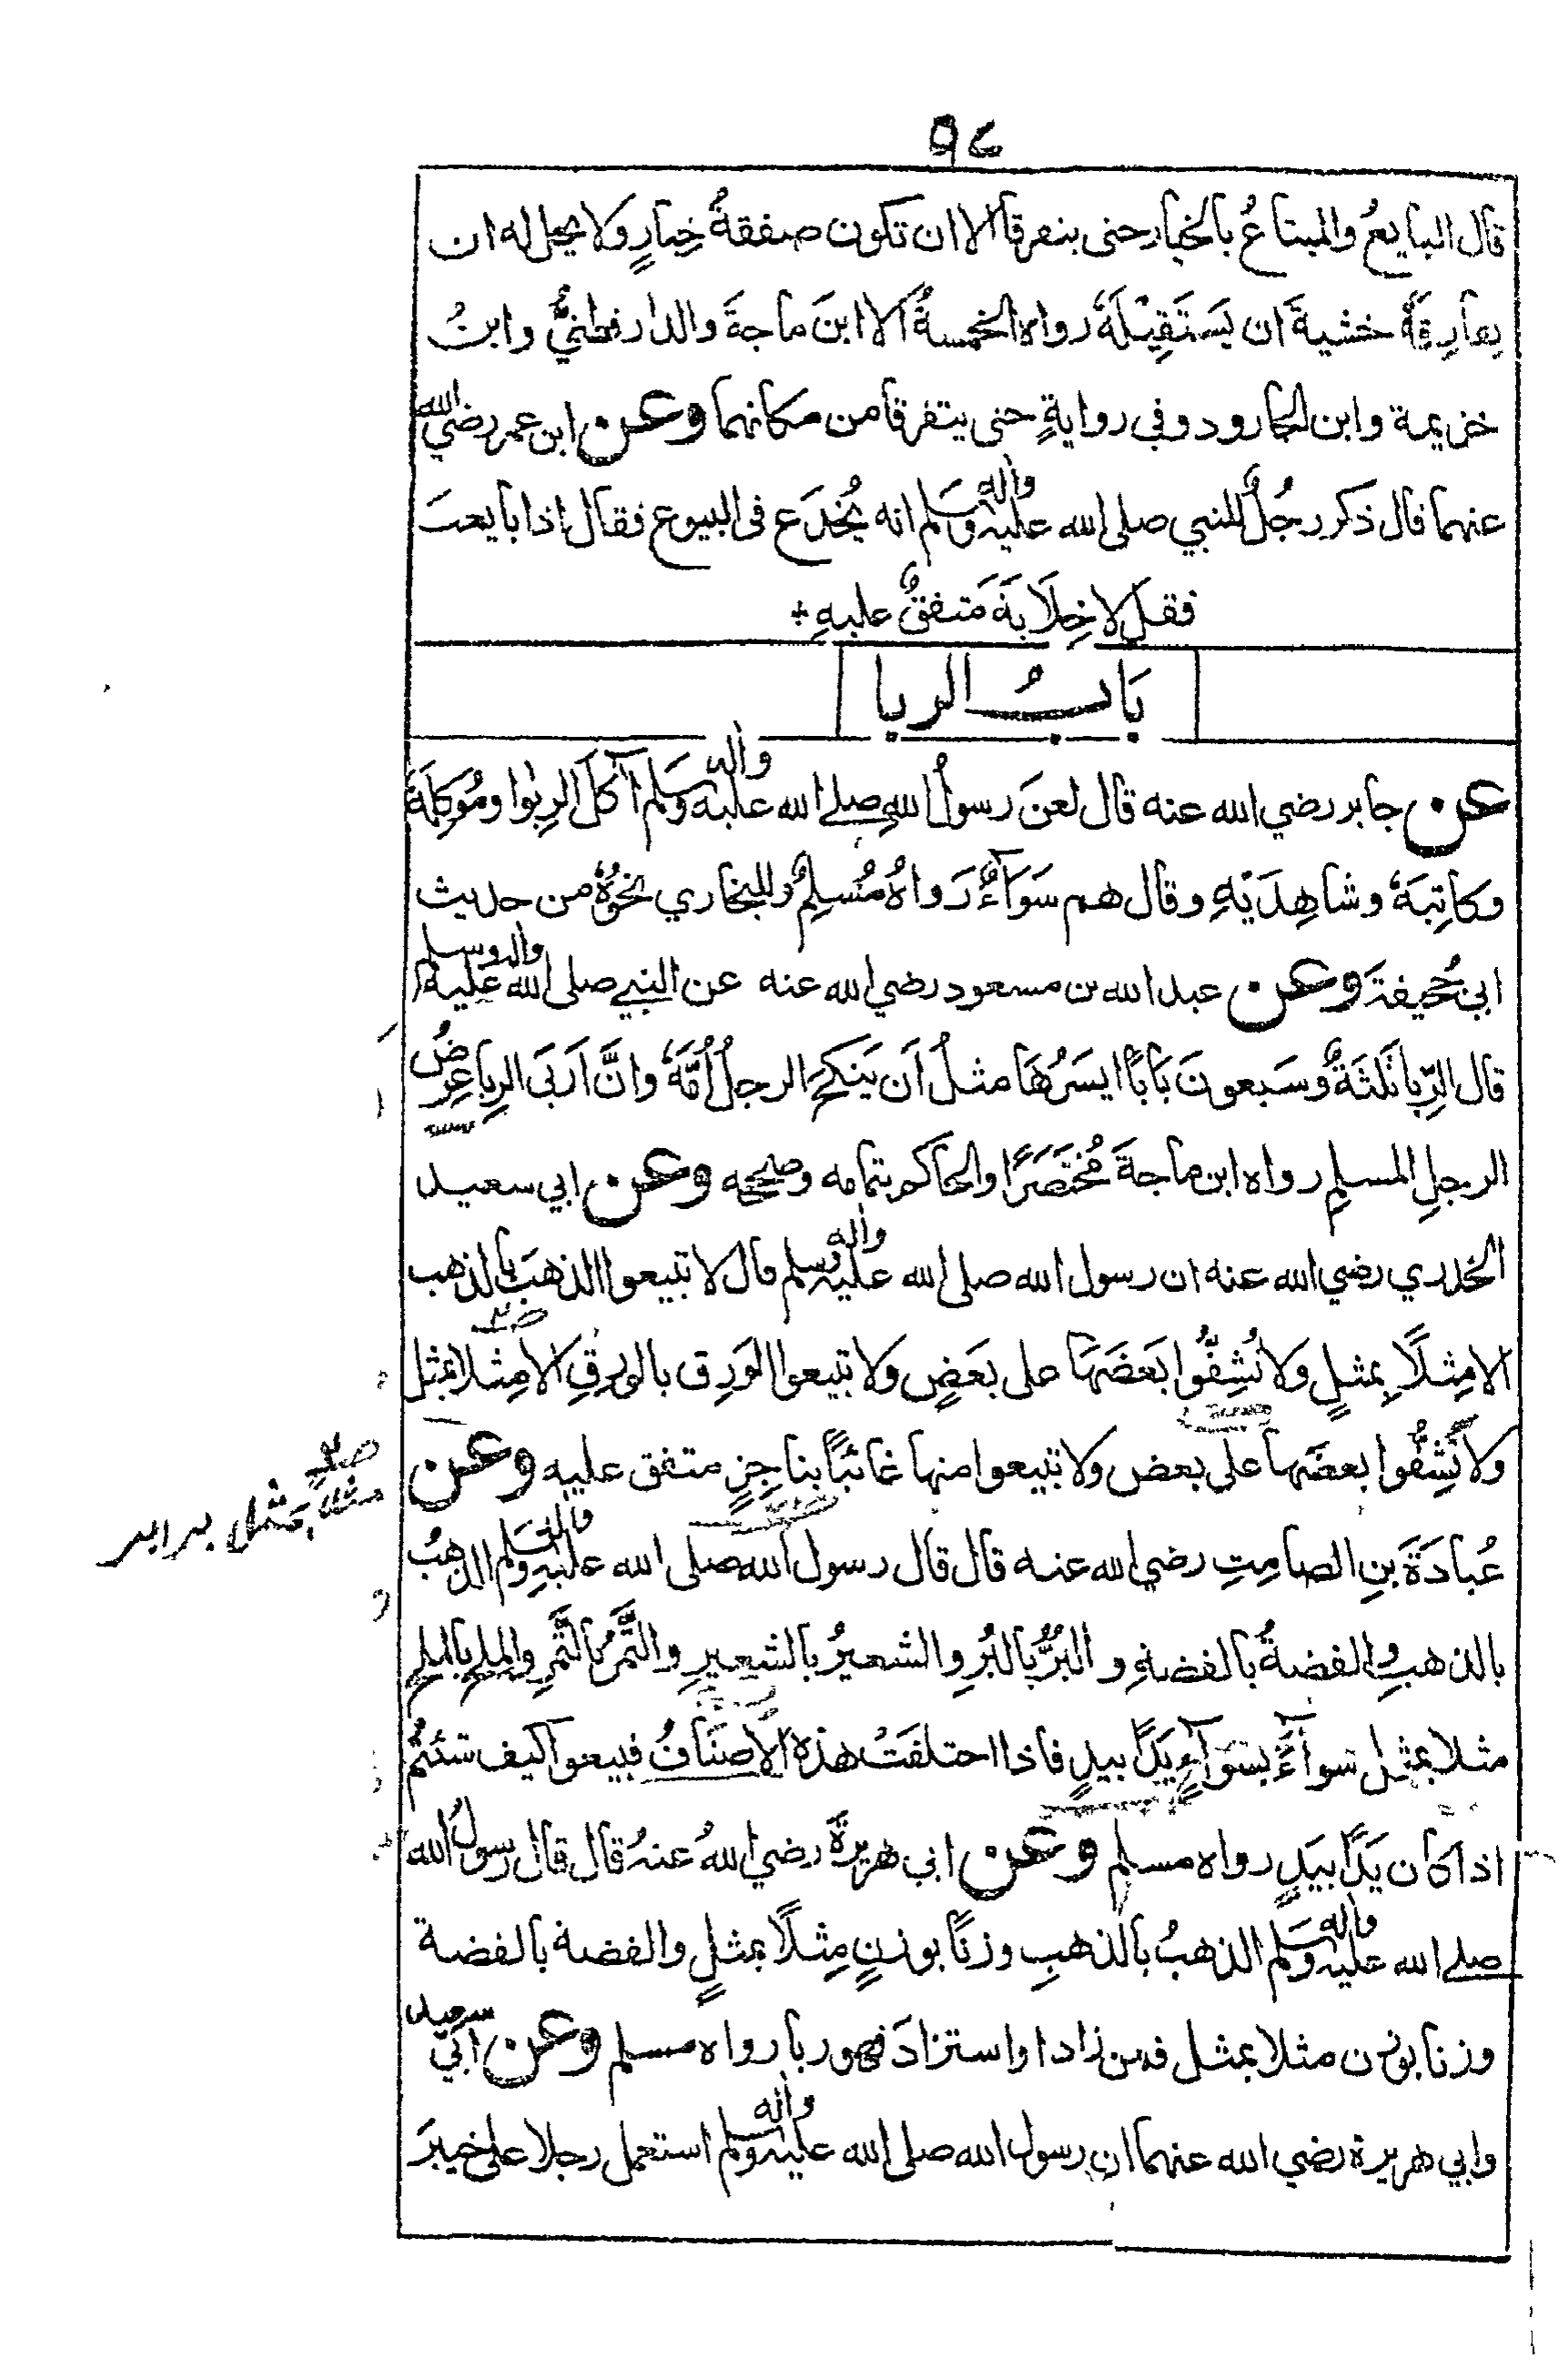 ٩٤
قال البايعُ والمبتاعُ بالخيار حتى يتفرقا الا ان تكون صفقةُ خِيارٍ ولا يحل له ان
يفارِقَهُ خشيةَ ان يَستَقِيلَهُ رواه الخمسةُ الا ابنَ ماجةَ والدارقطنيُّ وابنُ
خزيمة وابن الجارود وفى روايةٍ حتى يتفرقا من مكانهما وعن ابن عمر رضي الله
عنهما قال ذكر رجُلٌ للنبي صلى الله عليه واله وسلم انه يُخدَع فى البيوع فقال اذا بايعتَ
فقل لا خِلَابَةَ متفقٌ عليهِ
بَابُ الربا
عن جابر رضي الله عنه قال لعنَ رسولُ اللهِ صلے الله عليه واله وسلم آكلَ الرِبٰوا ومُوكِلَهُ
وكاتِبَهُ وشاهِدَيْهِ وقال هم سَوَآءٌ رَواهُ مُسْلِمٌ وللبخاري نحوُهُ من حديث
ابى جُحيفةَ وعن عبد الله بن مسعود رضي الله عنه عن النبے صلى الله عليه واله وسلم
قال الرِّبا ثلثةٌ وسَبعونَ بَابًا ايسَرُهَا مثلُ اَن يَنكِحَ الرجلُ اُمَّهُ وانَّ اَربَى الرِبا عِرضُ
الرجلِ المسلمِ رواه ابن ماجةَ مُختَصَرًا والحاكم بتمامه وصححه وعن ابي سعيد
الخدري رضي الله عنه ان رسول الله صلى الله عليه واله وسلم قال لا تبيعوا الذهبَ بالذهب
الا مِثلًا بمثلٍ ولا تُشِفُّوا بَعَضَهَا على بَعَضٍ ولا تبيعوا الوَرِق بالوَرِقِ الا مِثلا بمثل
ولا تُشِفُّوا بعضَها على بعض ولا تبيعوا منها غائبًا بناجِزٍ متفق عليه وعن
مثلاً بمثل برابر
عُبادَةَ بنِ الصامِتِ رضي الله عنه قال قال رسول الله صلى الله عليه واله وسلم الذهبُ
بالذهبِ والفضةُ بالفضةِ والبُرُّ بالبُرِ والشعيرُ بالشعيرِ والتَّمرُ بالتَّمرِ والملح بالملحِ
مثلا بمثل سوآءً بسَوَآءٍ يَدًا بيدٍ فاذا اختلفَتْ هذه الاَصنَافُ فبيعوا كيف شئتُم
اذا كان يَدًا بيَدٍ رواه مسلم وعن ابى هريرةَ رضي اللهُ عنهُ قال قال رسولُ الله
صلے الله عليه واله وسلم الذهبُ بالذهبِ وزنًا بوزنٍ مِثلًا بمثلٍ والفضة بالفضة
وزنا بوزن مثلا بمثل فمن زاد او استزادَ فهو ربا رواه مسلم وعن ابي سعيد
وابي هريرة رضي الله عنهما ان رسول الله صلى الله عليه واله وسلم استعمل رجلا على خيبرَ